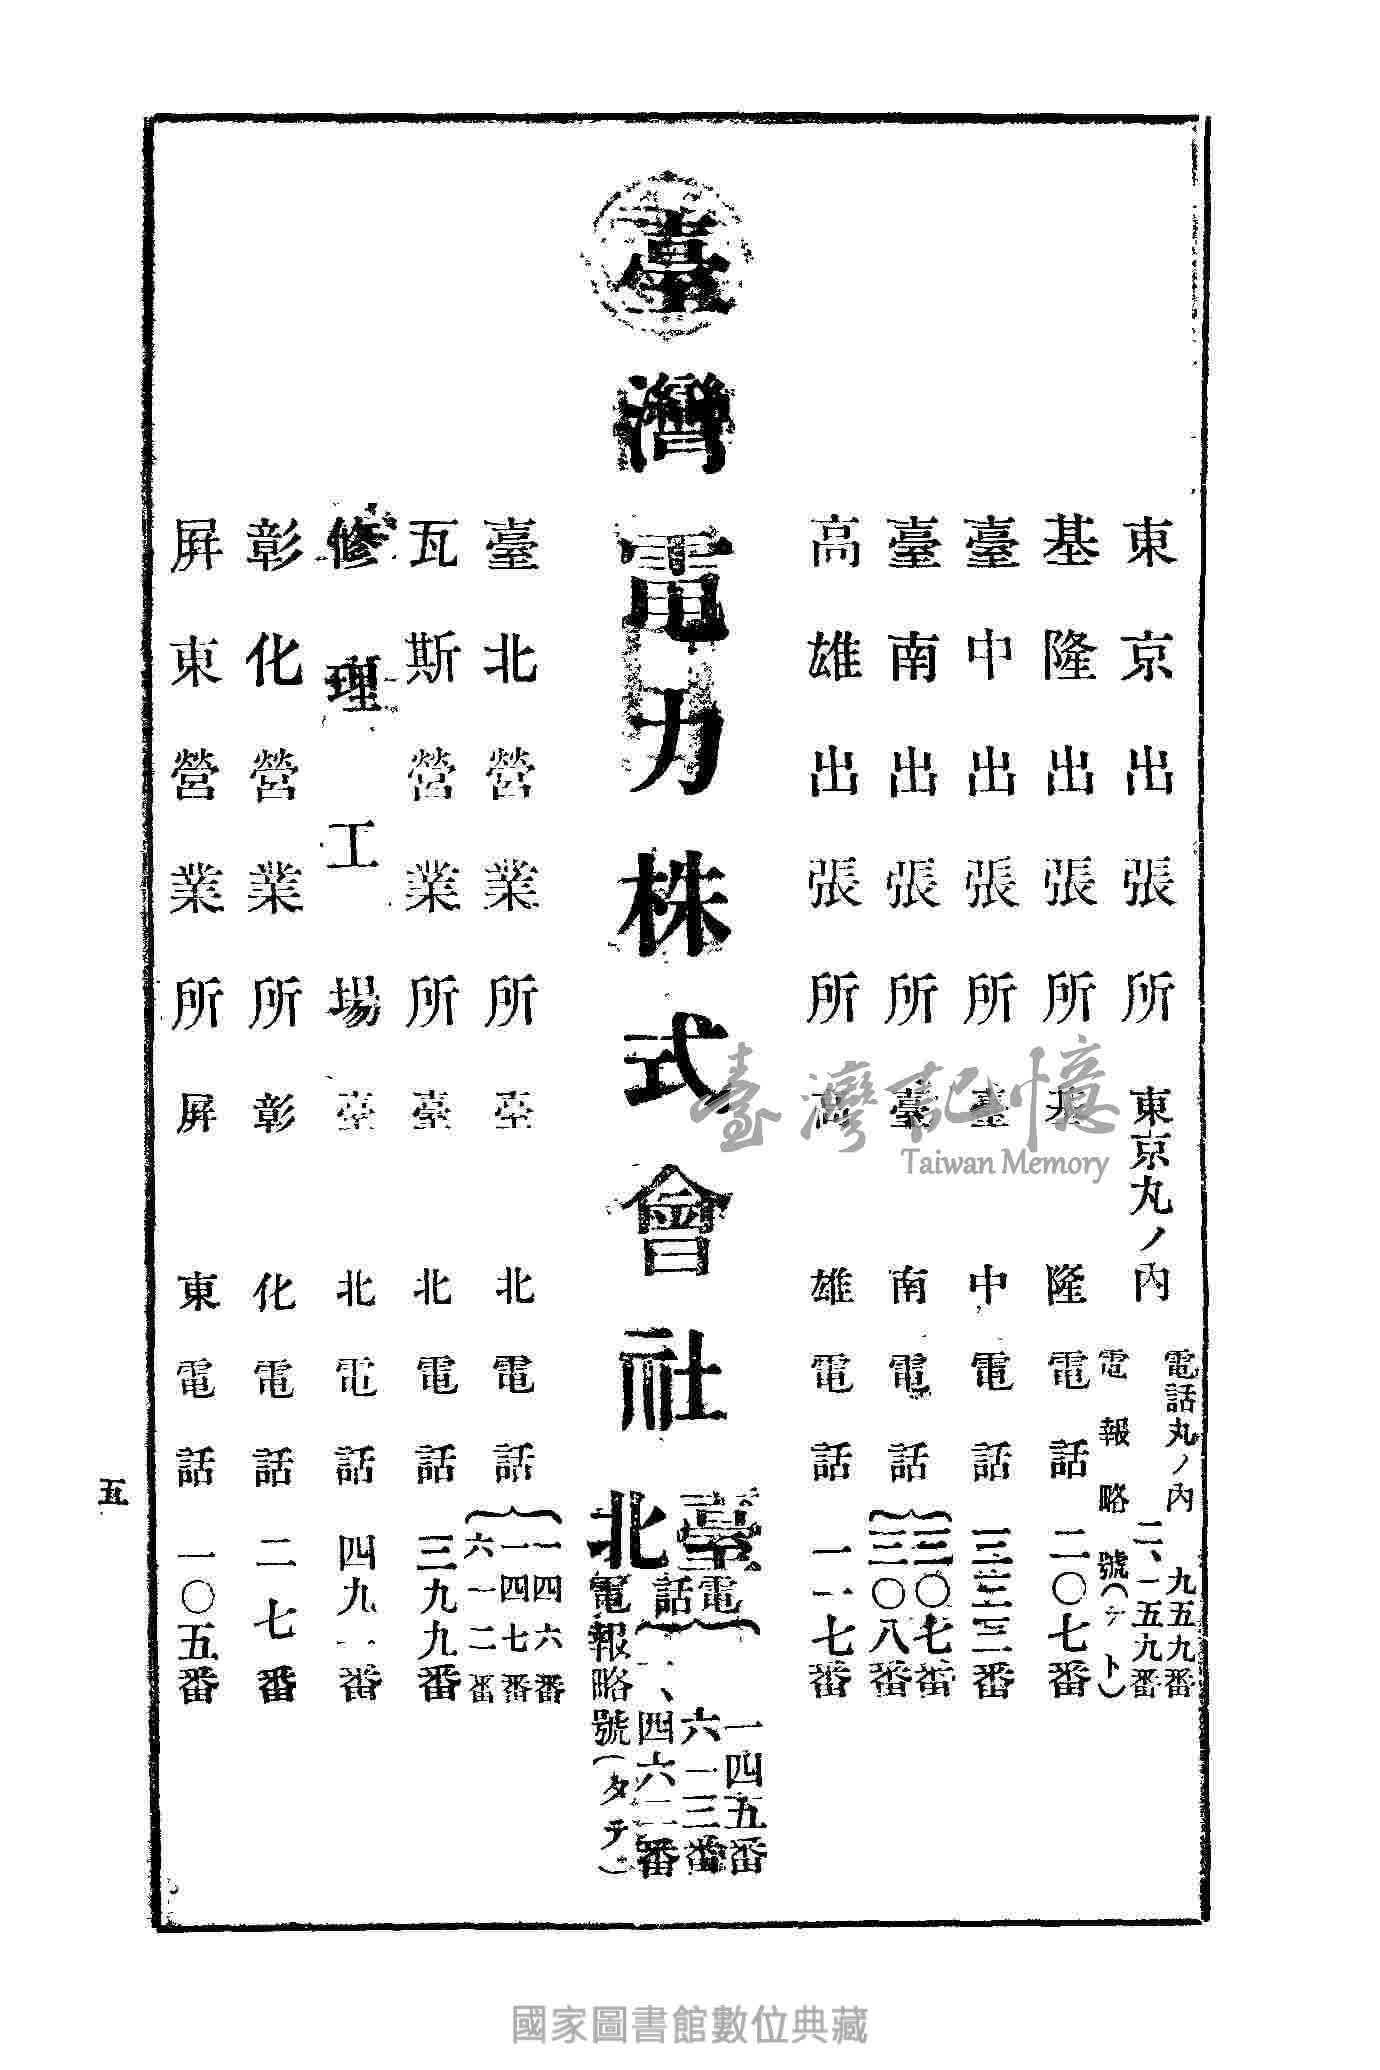 東京出張所 東京丸ノ內 電話丸ノ內 九五九番 二、一五九番 電報略號(テト)
基隆出張所 基隆 電話 二〇七番
臺中出張所 臺中 電話 三三三番
臺南出張所 臺南 電話 三〇七番 三〇八番
高雄出張所 高雄 電話 一一七番
臺灣電力株式會社
臺北 電話 一四五番 六一三番 一、四六二番
電報略號(タテ)
臺北營業所 臺北 電話 一四六番 一四七番 六一二番
瓦斯營業所 臺北 電話 三九九番
修理工場 臺北 電話 四九一番
彰化營業所 彰化 電話 二七番
屛東營業所 屛東 電話 一〇五番
五
臺灣記憶
Taiwan Memory
國家圖書館數位典藏